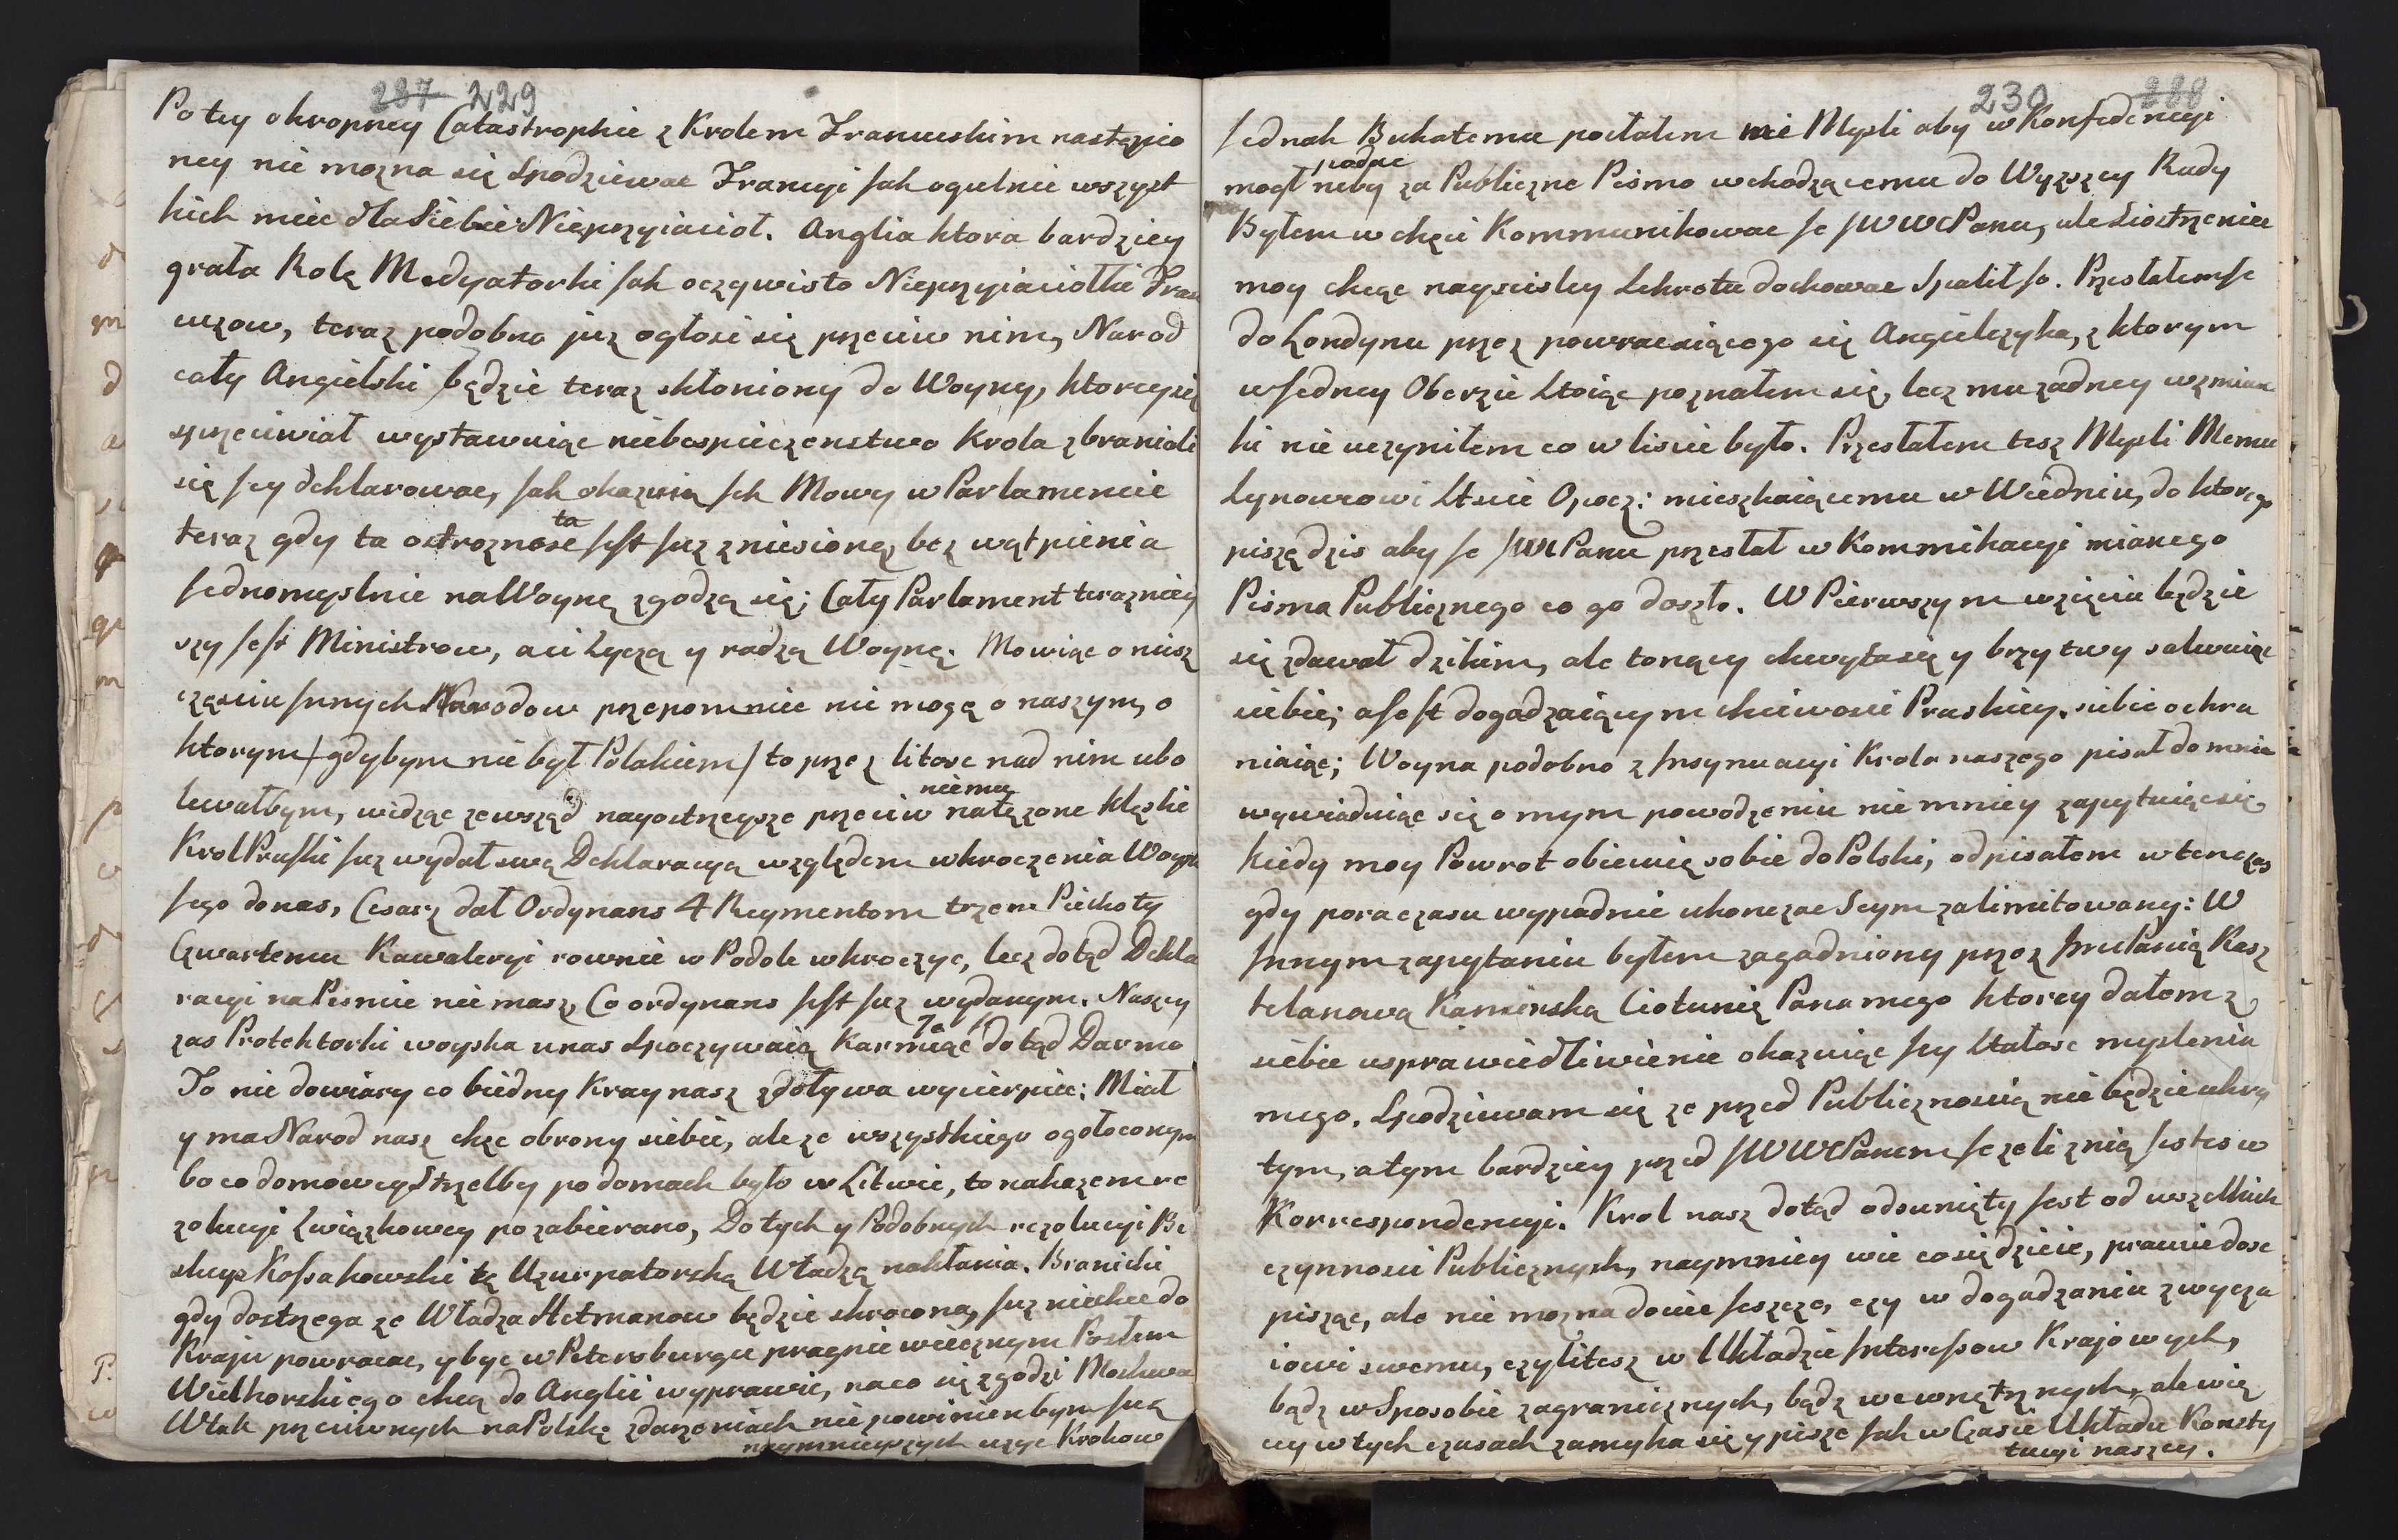 287 229
Po tey okropney Catastrophie z Krolem Francuskim nastąpio
ney nie mozna się Spodziewac Francyi jak ogulnie wszyst
kich miec dla Siebie Nieprzyiaciol. Anglia ktora bardziey
grała Rolę Medyatorki jak oczywisto Nieprzyiaciołki Fran
cuzow, teraz podobno juz ogłosi się przeciw nim, Narod
cały Angielski będzie teraz skłoniony do Woyny, ktorey się
sprzeciwiał wystawuiąc niebespieczenstwo Krola zbraniali
się jey deklarowac, jak okazuią jch Mowy w Parlamencie
ta
teraz gdy ta ostroznosc jest juz zniesioną bez wątpienia
jednomyslnie na Woynę zgodzą się; Cały Parlament terazniey
szy jest Ministrow, a ci życzą y radzą Woynę. Mowiąc o niesz
częsciu jnnych Narodow przepomniec nie mogę o naszym, o
ktorym / gdybym nie był Polakiem / to przez litosc nad nim ubo
niemu
lewałbym, widząc zewsząd nayostrzeysze przeciw natęzone klęski
Krol Pruski juz wydał swą Deklaracyą względem wkroczenia Woysk
jego do nas, Cesarz dał Ordynans 4 Regimentom trzem Piechoty
Czwartemu Kawaleryi rownie w Podole wkroczyc, lecz dotąd Dekla
racyi na Pismie nie masz, Co ordynans jest juz wydanym. Naszey
Je
zas Protektorki woyska u nas Spoczywaią Karmiąc dotąd Darmo
To nie dowiary co biedny Kray nasz zdoływa wycierpiec: Miał
y ma Narod nasz chęc obrony siebie, ale ze wszystkiego ogołoconym
bo co domowey Strzelby po domach było w Litwie, to nakazem re
zolucyi Związkowey pozabierano, Do tych y Podobnych rezolucyi Bi
skup Kossakowski tę Uzurpatorską Władzą nakłania. Branicki
gdy dostrzega ze Władza Hetmanow będzie skrocona, juz niechce do
Kraju powracac, y byc w Petersburgu pragnie wiecznym Posłem
Wielhorskiego chcą do Anglii wyprawic, na co się zgodzi Moskwa
W tak przeciwnych na Polskę zdarzeniach nie powinienbym juz
naymnieyszych uzyc Krokow
230 288
jednak Bukatemu posłałem me Mysli aby w Konfidencyi
podac
mogł neby za Publiczne Pismo wchodzącemu do Wyzszey Rady
Byłem w chęci Kommunikowac je JWWCPanu, ale Siostrzeniec
moy chcąc nayscisley Sekretu dochowac Spalił jo. Przesłałem je
do Londynu przez powracaiącego się Angielczyka, z ktorym
w jedney Oberzie Stoiąc poznałem się, lecz mu zadney wzmian
ki nie uczyniłem co w liscie było. Przesłałem tesz Mysli Memu
Synowcowi Stscie Opocz: mieszkaiącemu w Wiedniu, do ktorego
piszę dzis aby je JWPanu przesłał w Kommikacyi mianego
Pisma Publicznego co go doszło. W Pierwszym wzięciu będzie
się zdawał dzikim, ale tonący chwyta się y brzytwy salwuiąc
siebie; a jest dogadzaiącym chciwosci Pruskiey, siebie ochra
niaiąc; Woyna podobno z jnsynuacyi Krola naszego pisał do mnie
wywiaduiąc się o mym powodzeniu nie mniey zapytuiąc się
kiedy moy Powrot obiecuię sobie do Polski, odpisałem wtenczas
gdy pora czasu wypadnie ukonczac Seym zalimitowany: W
jnnym zapytaniu byłem zagadniony przez JmcPanią Kasz
telanową Kamieńską Ciotunię Pana mego ktorey dałem z
siebie usprawiedliwienie okazuiąc jey Stałosc myslenia
mego. Spodziewam się ze przed Publicznoscią nie będzie ukry
tym, a tym bardziey przed JWWCPanem jezeli z nią jestes w
Korrespondencyi. Krol nasz dotąd odsunięty jest od wszelkich
czynnosci Publicznych, naymniey wie co się dzieie, prawie dosc
pisząc, ale nie mozna dociec jeszcze, czy w dogadzaniu zwycza
iowi swemu, czylitesz w Układzie jnteressow Krajowych,
bądz w Sposobie zagranicznych, bądz wewnętrznych, ale wię
cy w tych czasach zamyka się y pisze jak w Czasie Układu Konsty
tucyi naszey.